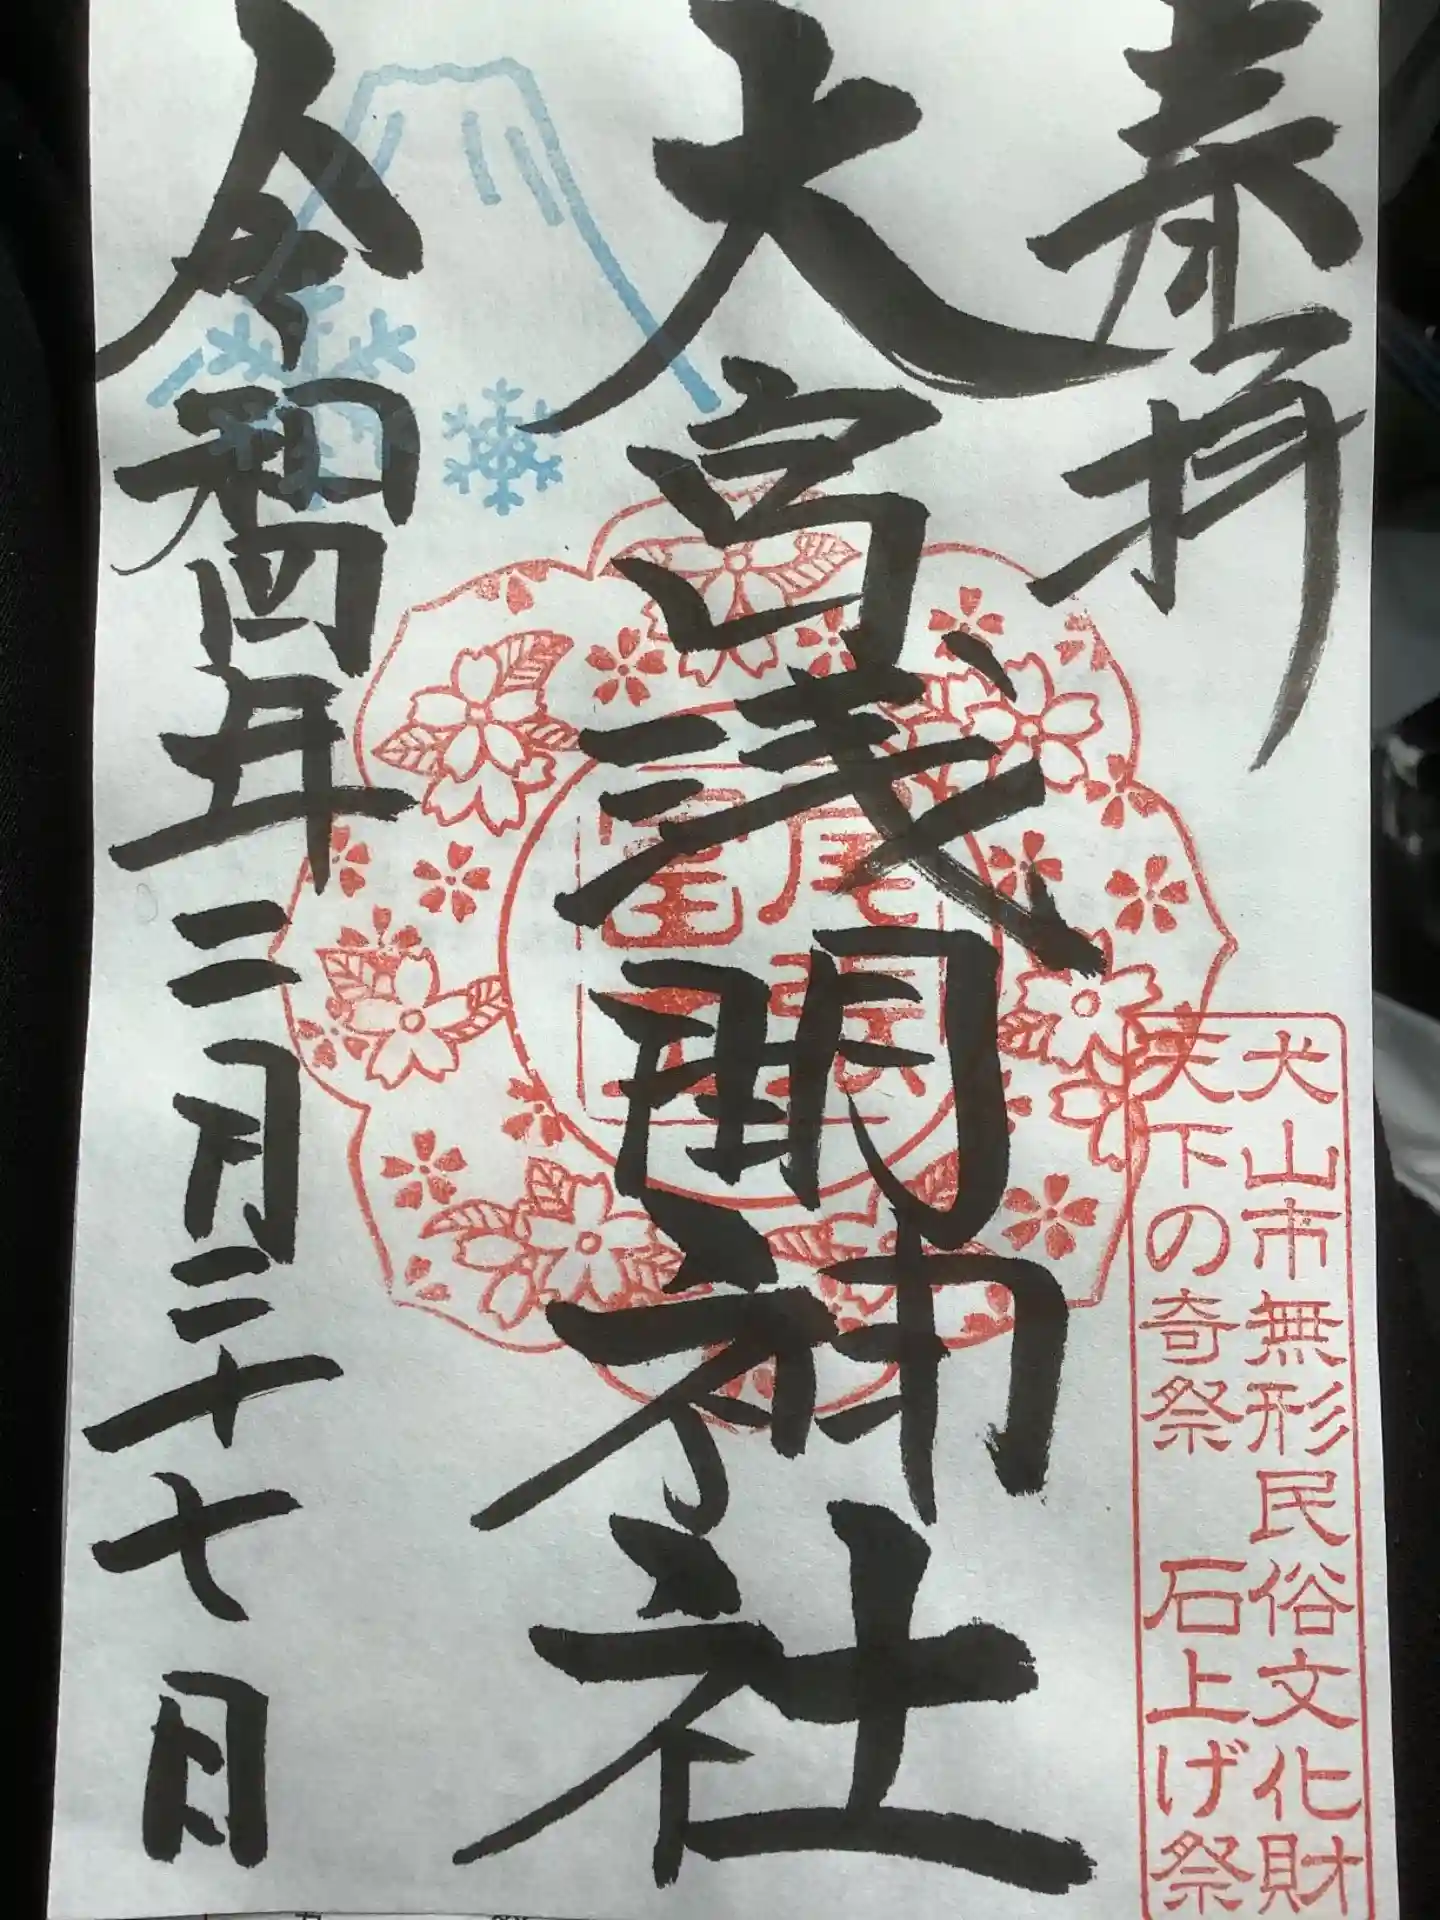 奉拝
犬山市無形民俗文化財
天下の奇祭 石上げ祭
大宮浅間神社
尾張
富士
令和四年二月二十七日